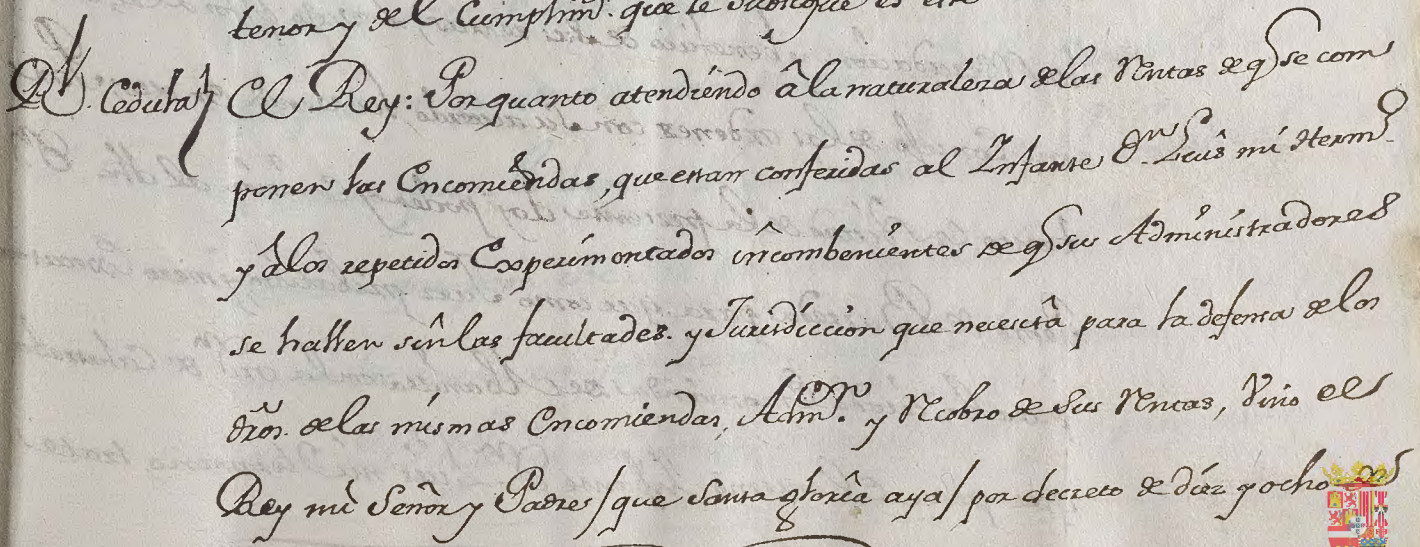 tenor y del Cumplim.to que le
Rl. Cedula El Rey: Por quanto atendiendo â la naturaleza de las Rentas de q. se com
ponen las Encomiendas, que estan conferidas al Infante Dn. Luis mi Herm.o
y â los repetidos Experimentados incombenientes de q. sus Administradores
se hallen sin las facultades. y Jurisdiccion que necesitâ para la defensa de los
dros. de las mismas Encomiendas, Admn. y Recobro de sus Rentas, Vino el
Rey mi Señor y Padre / que Santa gloria aya / por decreto de diez y ocho de